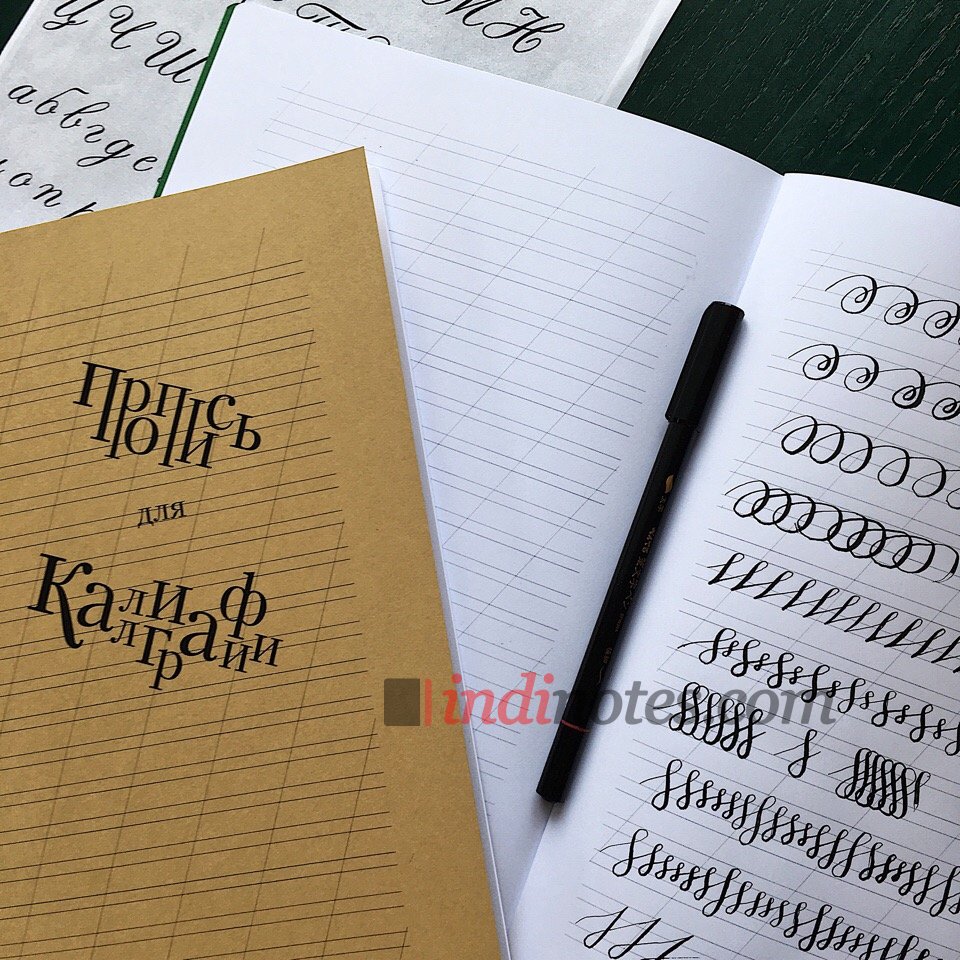 М Н
У Ч Ш
а б в г д е
о п р
Пропись
для
Каллиграфии
indinotes.com